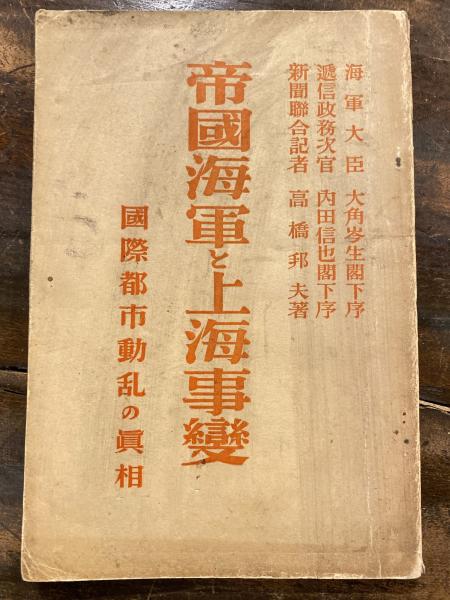 海軍大臣 大角岑生閣下序
遞信政務次官 內田信也閣下序
新聞聯合記者 高橋邦夫著
帝國海軍と上海事變
國際都市動乱の眞相